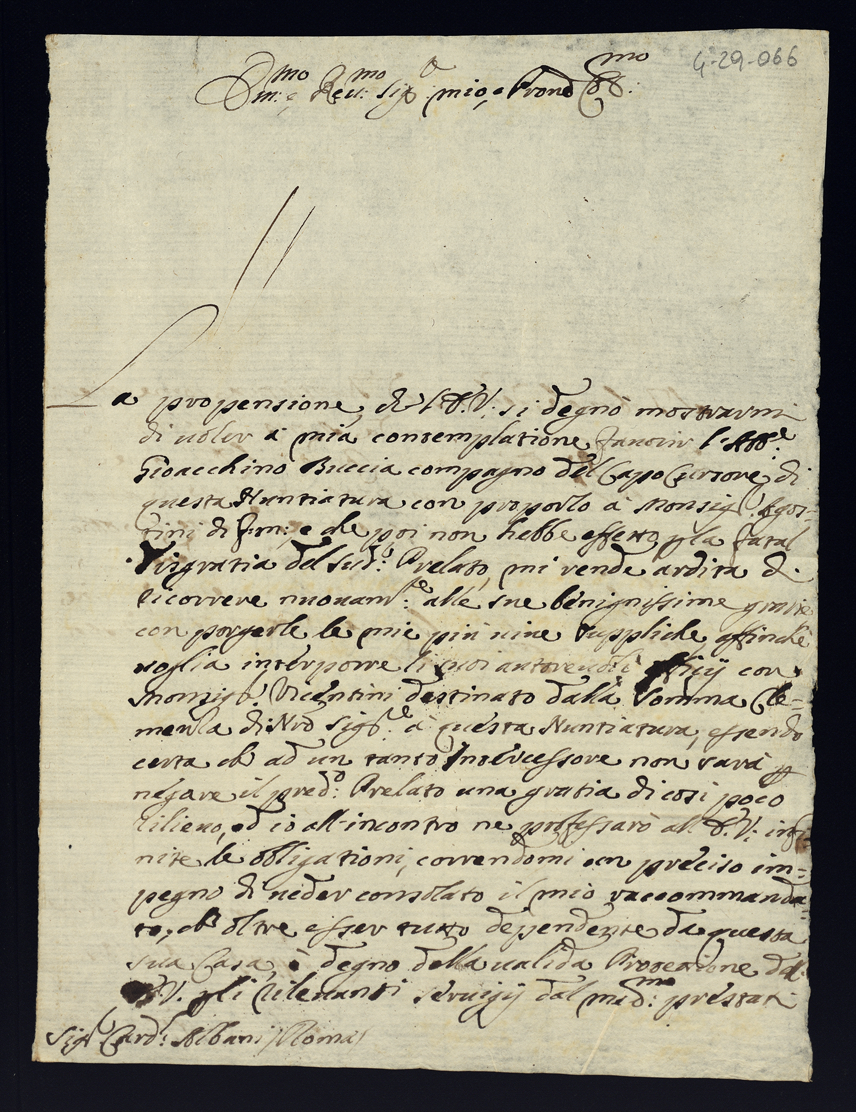 4-29-066
Em:mo e Reu:mo Sig:r mio, e Prone Col:mo
La propensione, che l'E.V. si degnò mostrarmi
di voler à mia contemplatione fauorir l'Abb:e
Gioacchino Buccia compagno del Capo Cursore di
questa Nuntiatura con proporlo à Monsig:r Agos=
tini di f:m:, e che poi non hebbe effetto p la fatal
disgratia del sud:o Prelato, mi rende ardita di
ricorrere nuouam:te alle sue benignissime gratie
con porgerle le mie più uiue suppliche affinche
uoglia interporre li suoi autoreuoli uffizij con
Monsig:r Vicentini destinato dalla somma Cle=
menza di Nro Sig:re à questa Nuntiatura, essendo
certa ch' ad un tanto Intercessore non sarà p
negare il pred:o Prelato una gratia di così poco
rilieuo, ed io all'incontro ne professarò all'E.V. infi=
nite le obligationi, correndomi un preciso im=
pegno di ueder consolato il mio raccommanda=
to, ch' oltre esser tutto dependente da questa
sua Casa, è degno della ualida Protezione dell'
E.V. p li rileuanti seruigij dal med:mo prestati
Sig:r Card:l Albani / Roma /